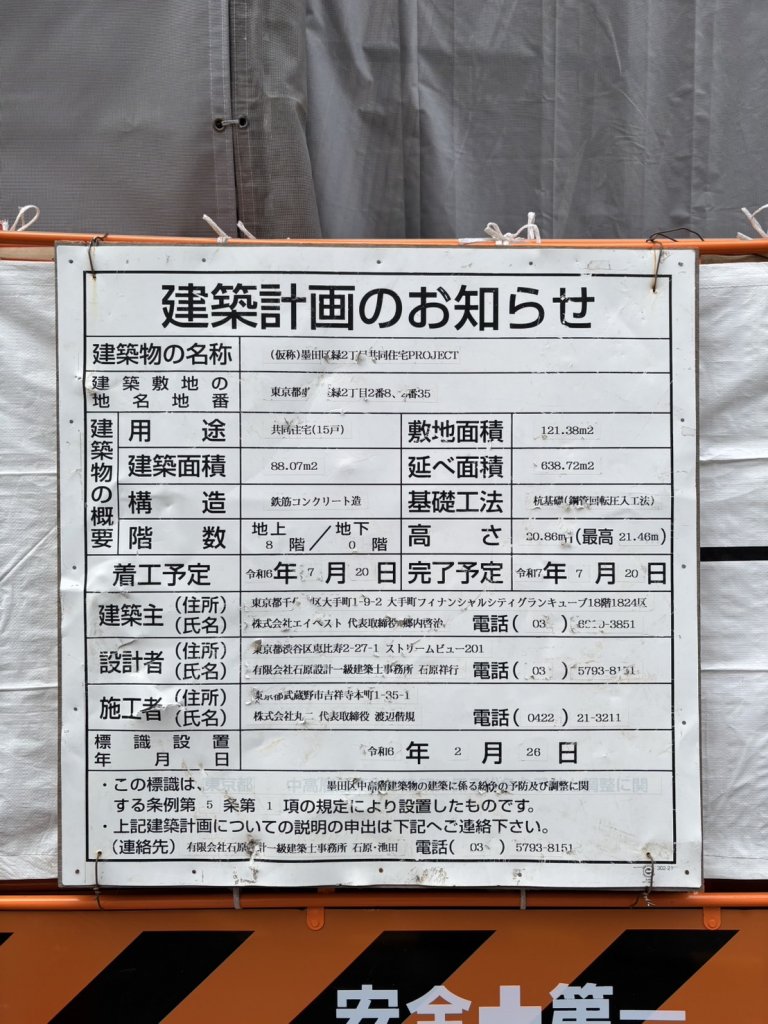 建築計画のお知らせ
建築物の名称 (仮称)墨田区緑2丁目共同住宅PROJECT
建築敷地の地名地番 東京都 緑2丁目2番8、 番35
建築物の概要
用途 共同住宅(15戸) 敷地面積 121.38m2
建築面積 88.07m2 延べ面積 638.72m2
構造 鉄筋コンクリート造 基礎工法 杭基礎(鋼管回転圧入工法)
階数 地上 8 階/地下 0 階 高さ 20.86m(最高 21.46m)
着工予定 令和6年 7 月 20 日 完了予定 令和7年 7 月 20 日
建築主 (住所) 東京都千代田区大手町1-9-2 大手町フィナンシャルシティグランキューブ18階1824区
(氏名) 株式会社エイベスト 代表取締役 郷内啓治 電話( 03 ) -3851
設計者 (住所) 東京都渋谷区恵比寿2-27-1 ストリームビュー201
(氏名) 有限会社石原設計一級建築士事務所 石原祥行 電話( 03 ) 5793-8151
施工者 (住所) 東京都武蔵野市吉祥寺本町1-35-1
(氏名) 株式会社丸二 代表取締役 渡辺偕規 電話( 0422 ) 21-3211
標識設置年月日 令和6 年 2 月 26 日
・この標識は、墨田区中高層建築物の建築に係る紛争の予防及び調整に関
する条例第 5 条第 1 項の規定により設置したものです。
・上記建築計画についての説明の申出は下記へご連絡下さい。
(連絡先) 有限会社石原設計一級建築士事務所 石原・池田 電話( 03 ) 5793-8151
302-21
安全+第一